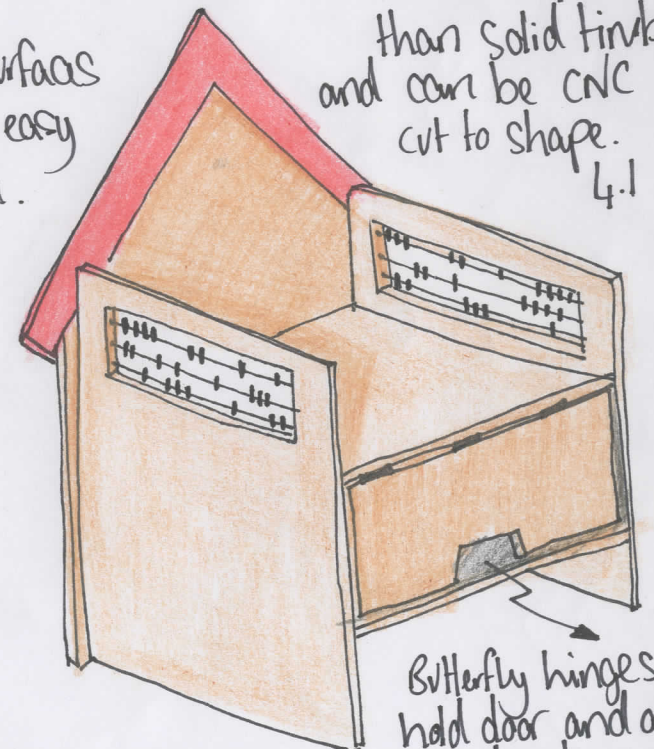 easy
than solid
and can be CNC
cut to shape.
4.1
Butterfly hinges
hold door and